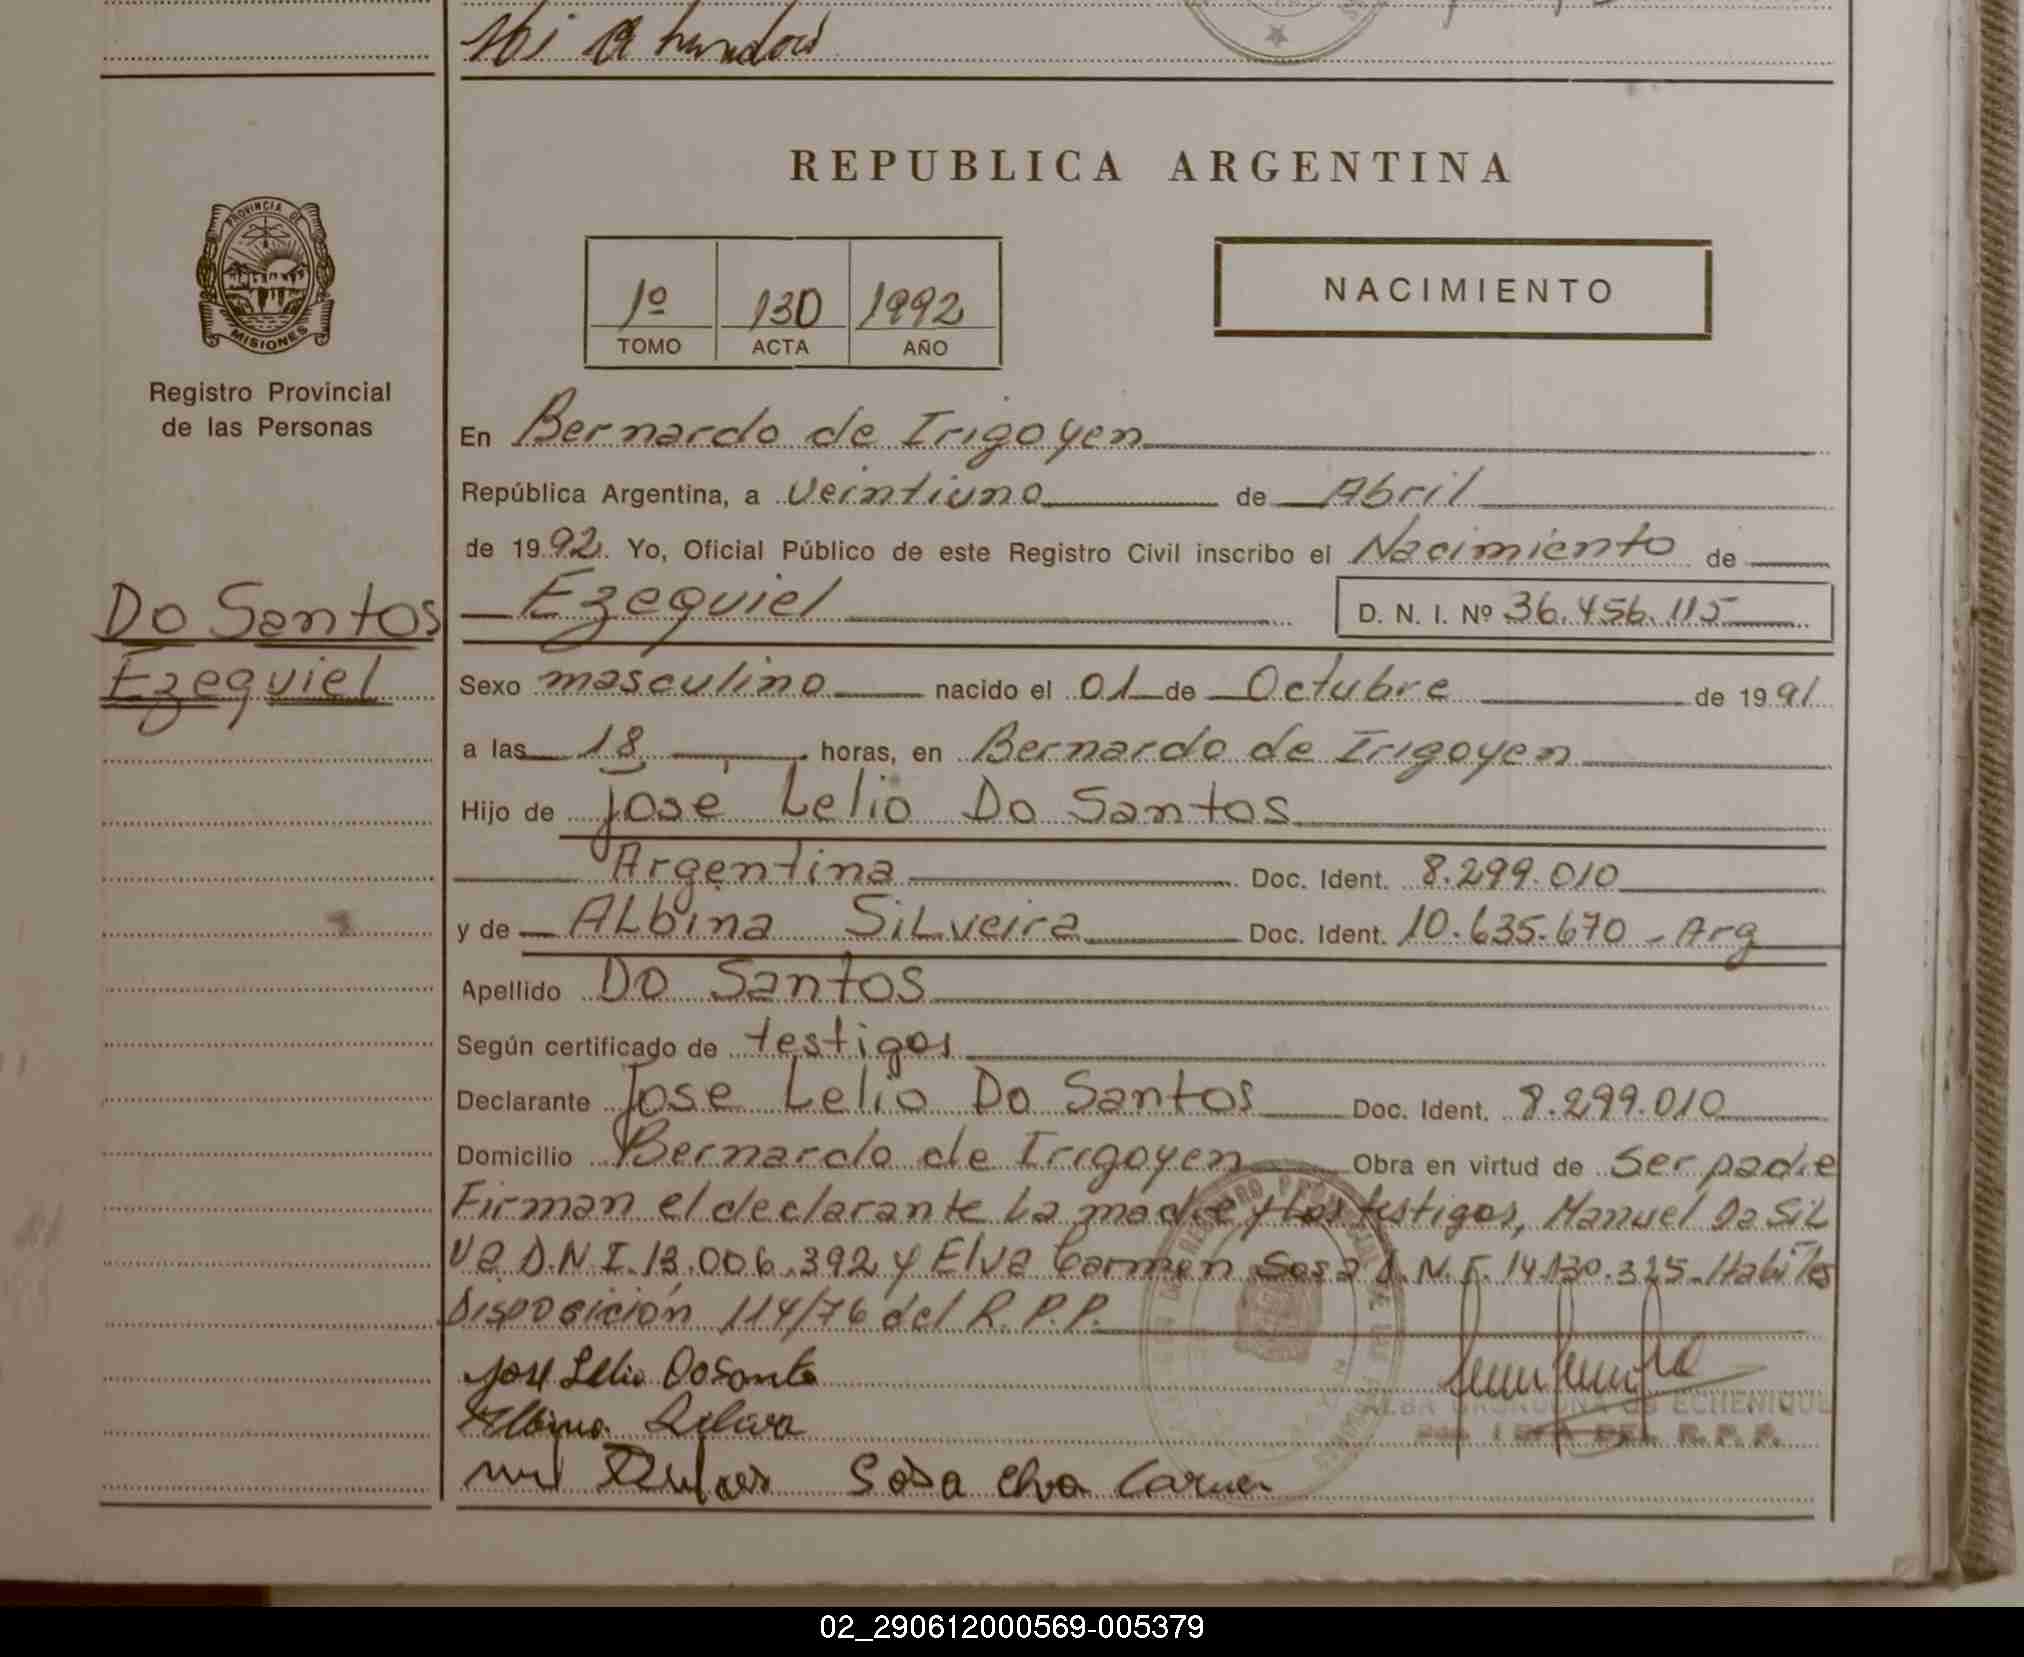 REPUBLICA ARGENTINA
PROVINCIA DE
MISIONES
Registro Provincial
de las Personas
1º 130 1992
TOMO ACTA AÑO
NACIMIENTO
Do Santos
Ezequiel
En Bernardo de Irigoyen
República Argentina, a veintiuno de Abril
de 1992. Yo, Oficial Público de este Registro Civil inscribo el Nacimiento de
Ezequiel D. N. I. Nº 36.456.115
Sexo masculino nacido el 01 de Octubre de 1991
a las 18 horas, en Bernardo de Irigoyen
Hijo de Jose Lelio Do Santos
Argentina Doc. Ident. 8.299.010
y de ALbina SiLveira Doc. Ident. 10.635.670 - Arg
Apellido Do Santos
Según certificado de testigos
Declarante Jose Lelio Do Santos Doc. Ident. 8.299.010
Domicilio Bernardo de Irigoyen Obra en virtud de Ser padre
Firman el declarante La madre y Los testigos, Manuel Da SiL
va D.N.I. 13.006.392 y Elva Carmen Sosa D.N.I. 14.130.325 - Habiles
Disposición 114/76 del R.P.P.
Jose Lelio Dosanto
Albina
ECHENIQUE
DEL R.P.P.
Sosa Elva Carmen
02_290612000569-005379